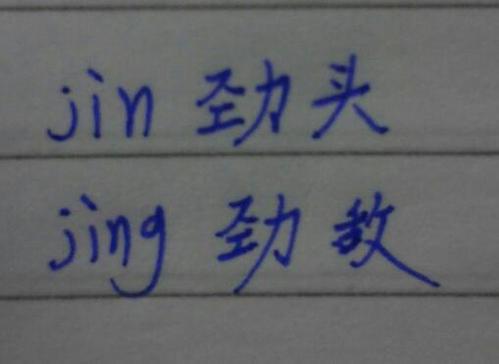 jin 劲头
jing 劲敌